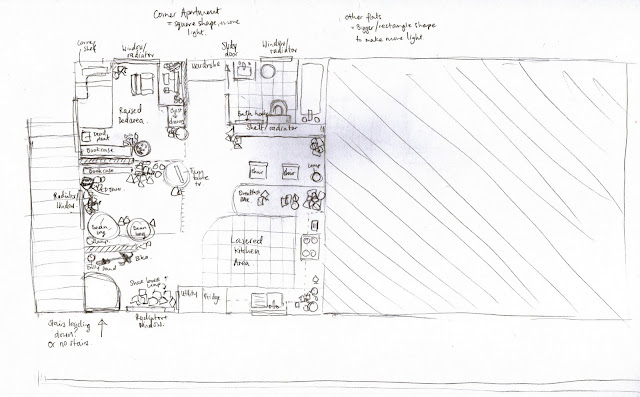 Corner Apartment
= square shape, more
light.
other flats
= Bigger/rectangle shape
to make more light.
Corner
shelf
Window/
radiator
Wardrobe
Sliding
door
Window/
radiator
Raised
Bed area.
Bath
Shelf/radiator
Dead
plant
Bookcase
Bookcase
Turn
table
TV
Chair
Chair
Lamp
Breakfast
Bar
Radiator/
Window.
Bean
bag
Bean
bag
Lamp
Layered
Kitchen
Area
Bike
Shoe lover
Utility
Fridge
Radiator
Window.
Stairs leading
down?
Or no stairs.